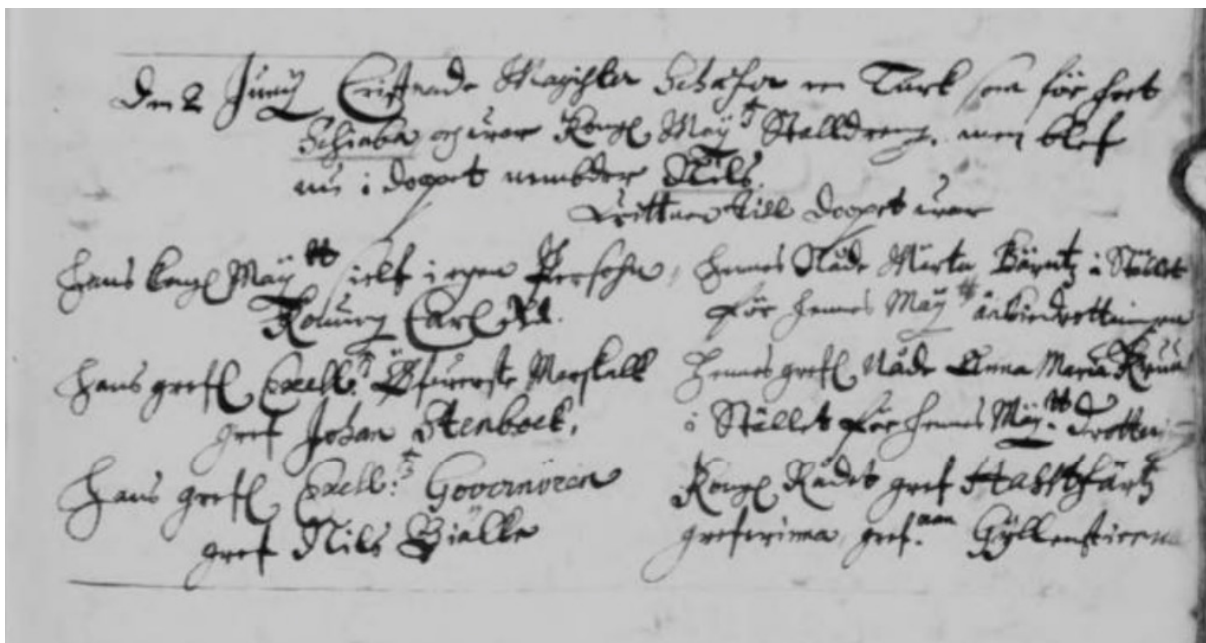 Den 2 Junij Cristnade Magister Schäfer en Turk som för heet
Schiaba og war Kongl May:t Stalldreng, men blef
nu i dopet nembder Nils.
Wittner till dopet war
Hans Kongl May:tt sielf i egen Persohn,
Konung Carl XI.
Hans grefl Excell:t Öfwerste Marskalk
gref Johan Stenbock,
Hans grefl Excell:t Governören
gref Nils Biälke
Hennes Nåde Märta Bärntz i Stället
för Hennes May:tt änkiedrottningen
Hennes grefl Nåde Anna Maria
i Stället för Hennes May:tt Drottni
Kongl Rådet gref
grefwinna, gref:nan Gyllenstierna